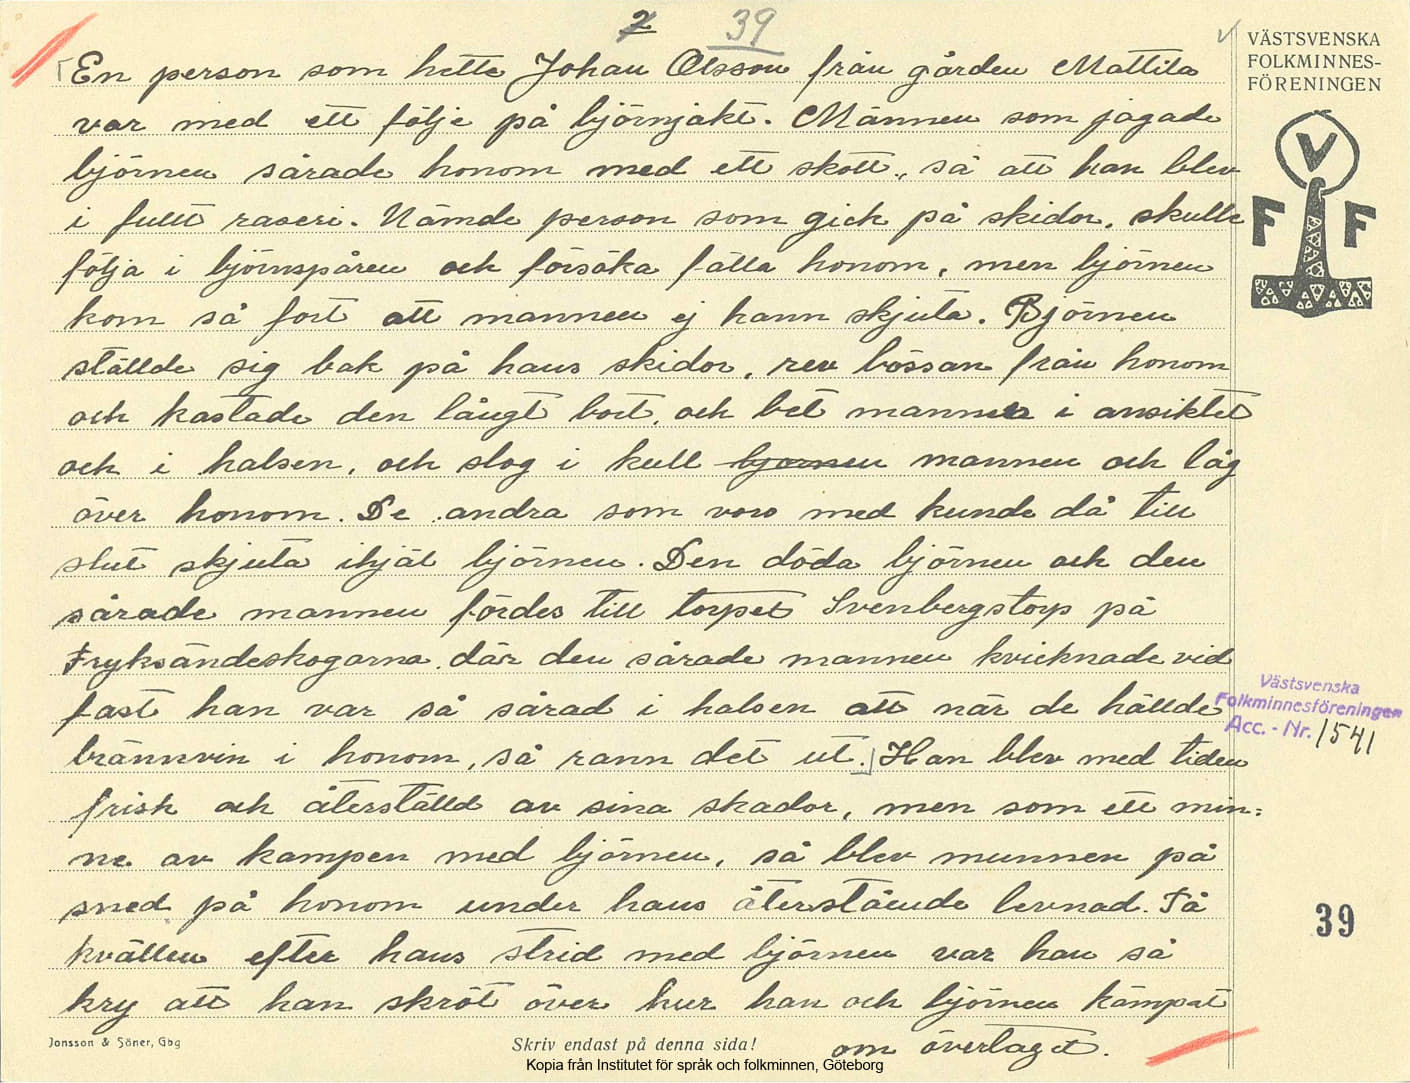 2 39
En person som hette Johan Olsson från gården Mattila
var med ett följe på björnjakt. Männen som jagade
björnen sårade honom med ett skott, så att han blev
i fullt raseri. Nämde person som gick på skidor, skulle
följa i björnspåren och försöka fälla honom, men björnen
kom så fort att mannen ej hann skjuta. Björnen
ställde sig bak på hans skidor, rev bössan från honom
och kastade den långt bort, och bet mannen i ansiktet
och i halsen, och slog i kull björnen mannen och låg
över honom. De andra som voro med kunde då till
slut skjuta ihjäl björnen. Den döda björnen och den
sårade mannen fördes till torpet Svenbergstorp på
Fryksändeskogarna, där den sårade mannen kvicknade vid
fast han var så sårad i halsen att när de hällde
brännvin i honom, så rann det ut. Han blev med tiden
frisk och återställd av sina skador, men som ett min=
ne av kampen med björnen, så blev munnen på
sned på honom under hans återstående levnad. På
kvällen efter hans strid med björnen var han så
kry att han skröt över hur han och björnen kämpat
om överlaget.
VÄSTSVENSKA
FOLKMINNES-
FÖRENINGEN
V
F F
Västsvenska
Folkminnesföreningen
Acc. - Nr. 1541
39
Jonsson & Söner, Gbg
Skriv endast på denna sida!
Kopia från Institutet för språk och folkminnen, Göteborg